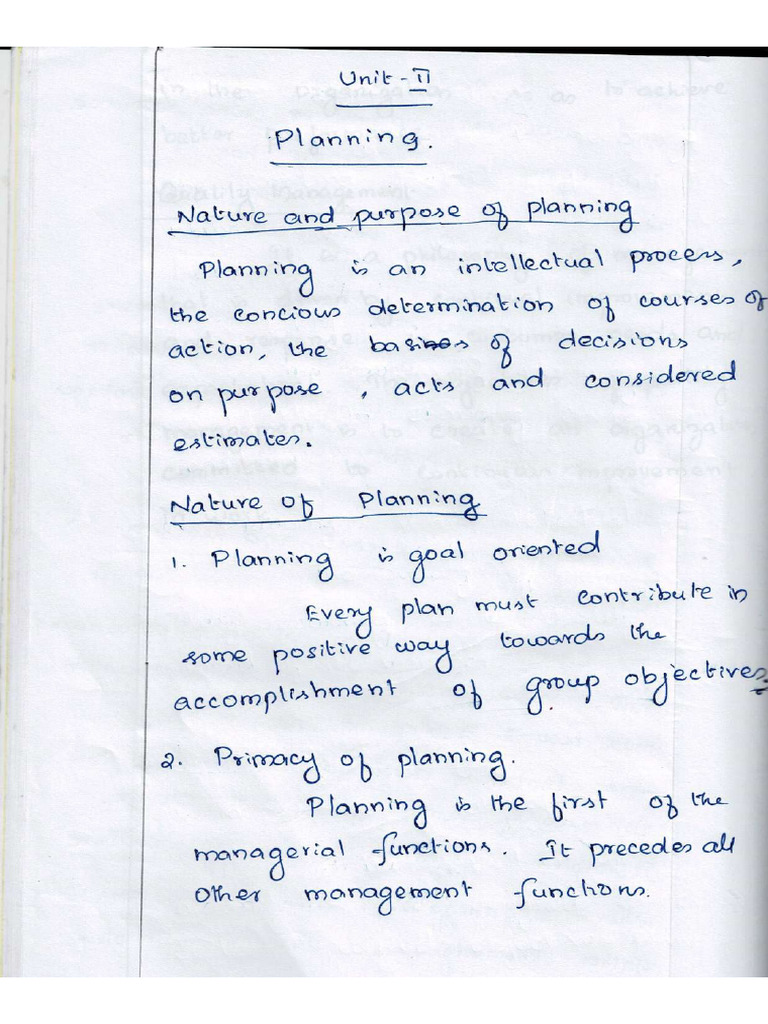 Unit - II
Planning.
Nature and purpose of planning
Planning is an intellectual process,
the concious determination of courses of
action, the bases of decisions
on purpose, acts and considered
estimates.
Nature of Planning
1. Planning is goal oriented
Every plan must contribute in
some positive way towards the
accomplishment of group objectives
2. Primacy of planning.
Planning is the first of the
managerial functions. It precedes all
other management functions.